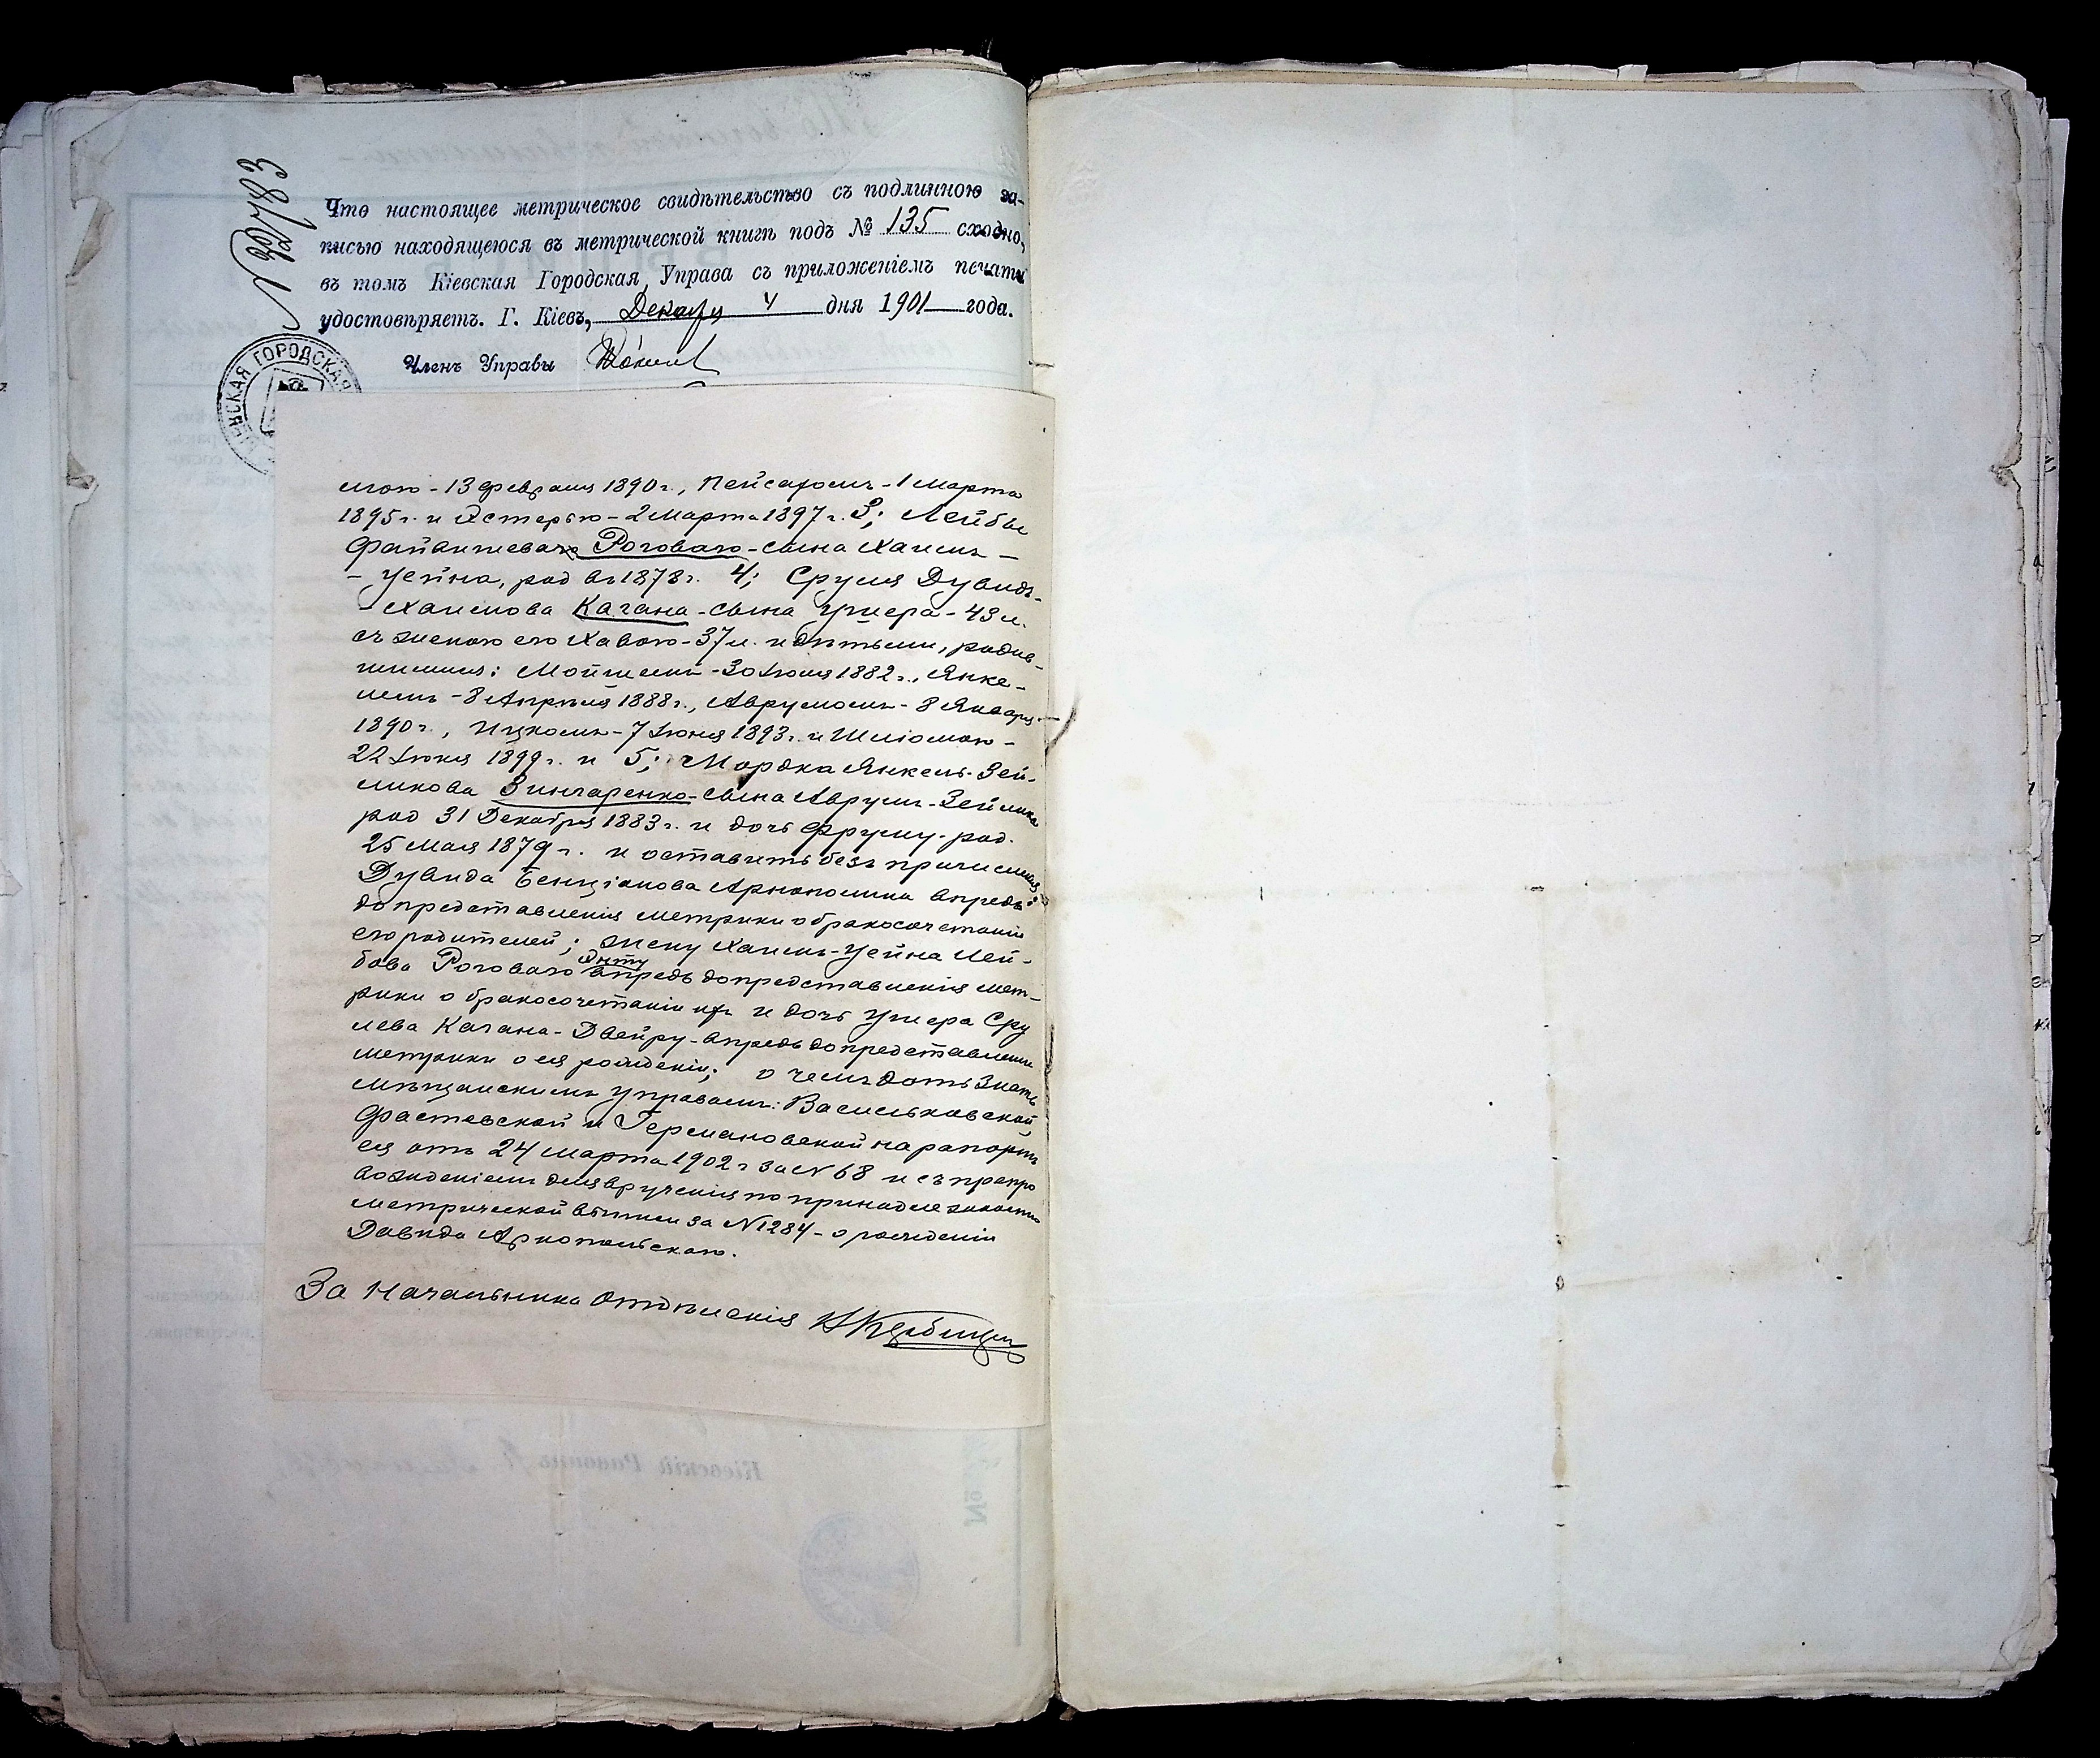 Что настоящее метрическое свидѣтельство съ подлинною за-
писью находящеюся въ метрической книгѣ подъ № 135 сходно,
въ томъ Кіевская Городская Управа съ приложеніемъ печати
удостовѣряетъ. Г. Кіевъ, Декабря 4 дня 1901 года.
Членъ Управы
КІЕВСКАЯ ГОРОДСКАЯ
мою - 13 февраля 1890 г., Пейсахомъ - 1 Марта
1895 г. и Эстерью - 2 Марта 1897 г. 3; Лейбы
Файвишевача Роговаго - сына Хаимъ -
- Уейна, род въ 1878 г. 4; Сруля Дувидъ-
- Хаимова Кагана - сына Ушера - 43 л.
съ женою его Хавою - 37 л. и дѣтьми, родив-
шимися: Мойшеемъ - 30 Іюля 1882 г., Янке-
лемъ - 8 Апрѣля 1888 г., Аврумомъ - 8 Января
1890 г., Ицкомъ - 7 Іюня 1893 г. и Шліомою -
22 Іюня 1899 г. и 5; Мордка Янкель-Зей-
ликова Зинчаренко - сына Аврумъ-Зейлика
род 31 Декабря 1883 г. и дочь Фруму - род.
25 Мая 1879 г. и оставить безъ причисленія:
Дувида Бенціонова Арнополина впредь
до представленія метрики о бракосочетаніи
его родителей; жену Хаимъ-Уейна Лей-
бова Роговаго Энту впредь до представленія мет-
рики о бракосочетаніи ихъ и дочь Ушера Сру
лева Кагана - Двейру - впредь до представленія
метрики о ея рожденіи; о чемъ дать знать
мѣщанскимъ управамъ: Васильковской,
Фастовской и Германовской на рапортъ
ея отъ 24 Марта 1902 г за № 68 и съ препро
вожденіемъ для врученія по принадлежности
метрической выписи за № 1284 - о рожденіи
Давида Арнопольскаго.
За Начальника Отдѣленія